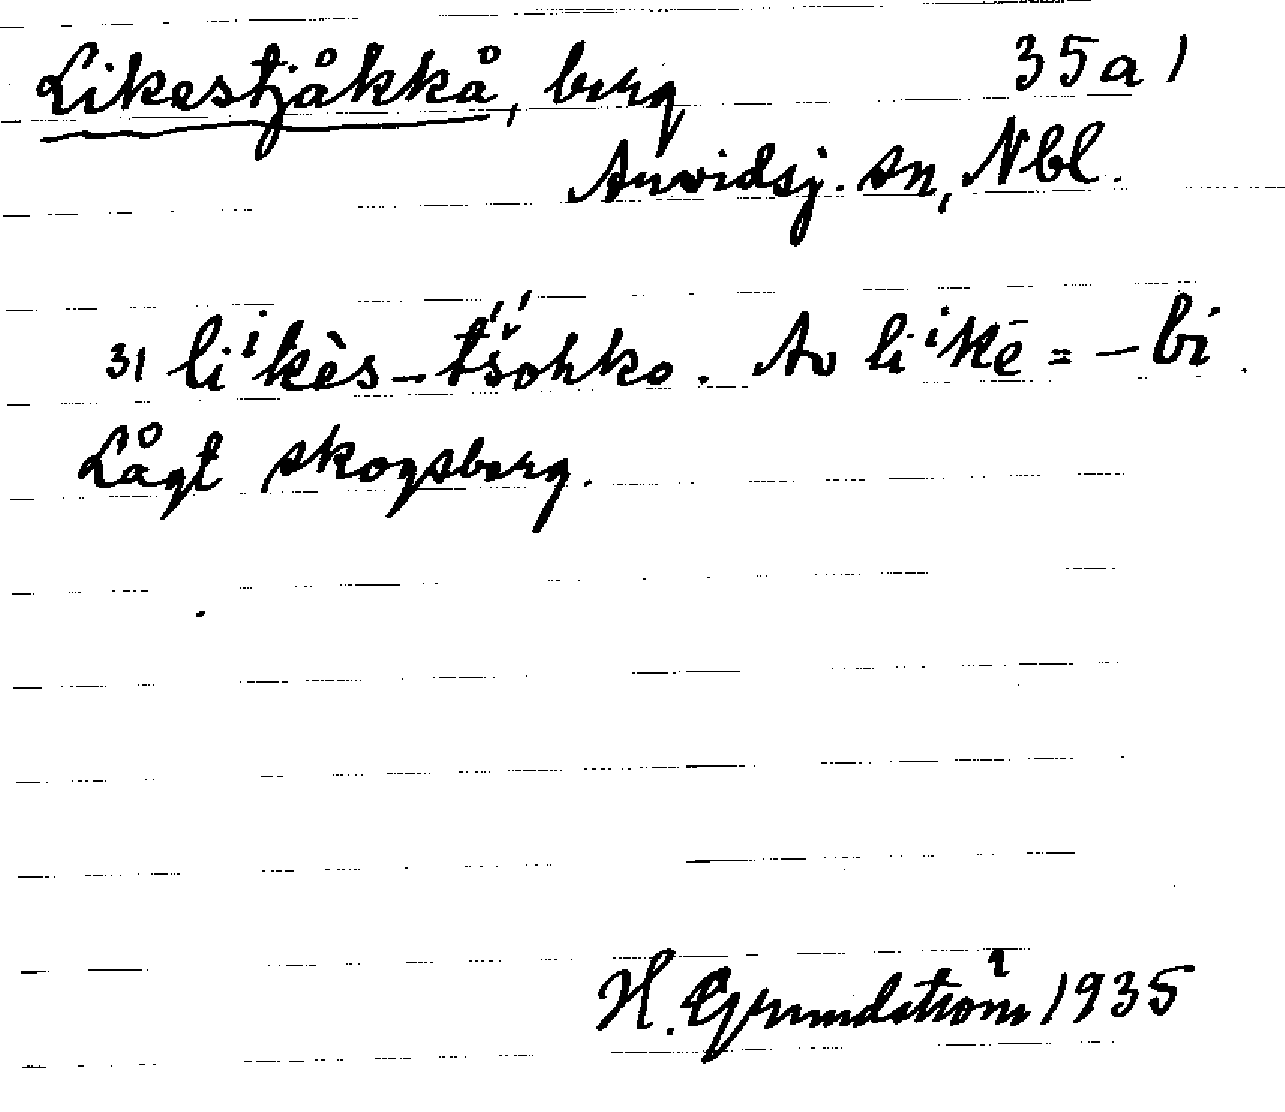 Likestjåkkå, berg 35a1
Arvidsj. sn, Nbl.
31 liⁱkès-tšohko. Av liⁱkē = -bi.
Lågt skogsberg.
H. Grundström 1935